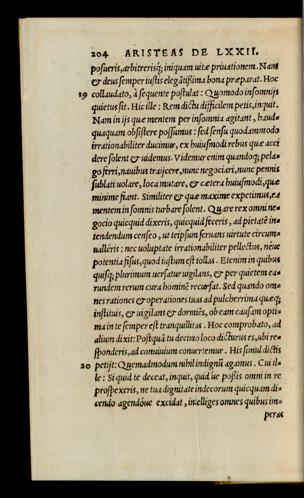 204 ARISTEAS DE LXXII.
posueris, arbitrerisq́; iniquam uitæ priuationem. Nam
& deus semper iustis elegātißima bona præparat. Hoc
19 collaudato, à sequente postulat: Quomodo insomnijs
quietus sit. Hic ille: Rem dictu difficilem petis, inquit.
Nam in ijs quæ mentem per insomnia agitant, haud-
quaquam obsistere possumus: sed sensu quodammodo
irrationabiliter ducimur, ex huiusmodi rebus quæ acci
dere solent & uidemus. Videmur enim quandoq; pela
go ferri, nauibus traijcere, nunc negociari, nunc pennis
sublati uolare, loca mutare, & cætera huiusmodi, quæ
minime fiant. Similiter & quæ maxime expetimus, ea
mentem in somnis turbare solent. Quare rex omni ne-
gocio quicquid dixeris, quicquid feceris, ad pietatē in
tendendum censeo, ut teipsum feruans uirtute circum-
ualleris: nec uoluptate irrationabiliter pellectus, néue
potentia fisus, quod iustum est tollas. Etenim in quibus
quisq; plurimum uersatur uigilans, & per quietem ea-
rundem rerum cura hominē recursat. Sed quando om-
nes rationes & operationes tuas ad pulcherrima quæq;
instituis, & uigilans & dormiēs, ob eam causam opti-
ma in te semper est tranquillitas. Hoc comprobato, ad
alium dixit: Postquā tu decimo loco dicturus es, ubi re-
sponderis, ad conuiuium conuertemur. His simul dictis
20 petijt: Quemadmodum nihil indignū agamus. Cui il-
le: Si quid te deceat, inquit, quid úe poßis omni in re
prospexeris, ne tua dignitate indecorum quicquam di-
cendo agendóue excidat, intelliges omnes quibus im-
peras